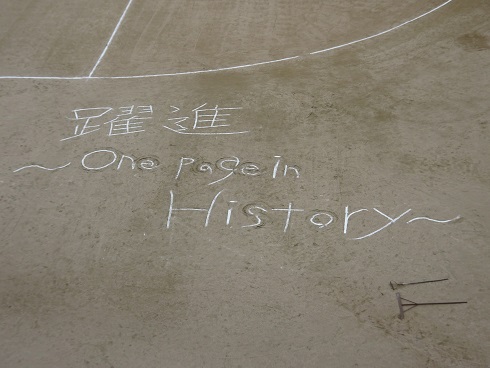 躍進
～One page in
History～